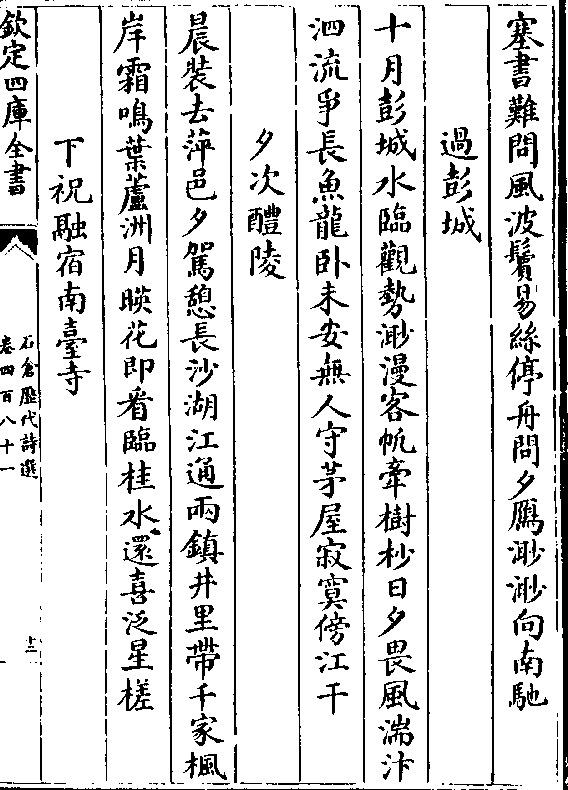 塞書難問風波鬢易絲停舟問夕鴈渺渺向南馳
過彭城
十月彭城水臨觀勢渺漫客帆牽樹杪日夕畏風湍汴
泗流爭長魚龍卧未安無人守茅屋寂寞傍江干
夕次醴陵
晨裝去萍邑夕駕憩長沙湖江通兩鎮井里帶千家楓
岸霜鳴葉蘆洲月暎花即看臨桂水還喜泛星槎
下祝融宿南臺寺
欽定四庫全書
石倉歷代詩選
卷四百八十一
十二